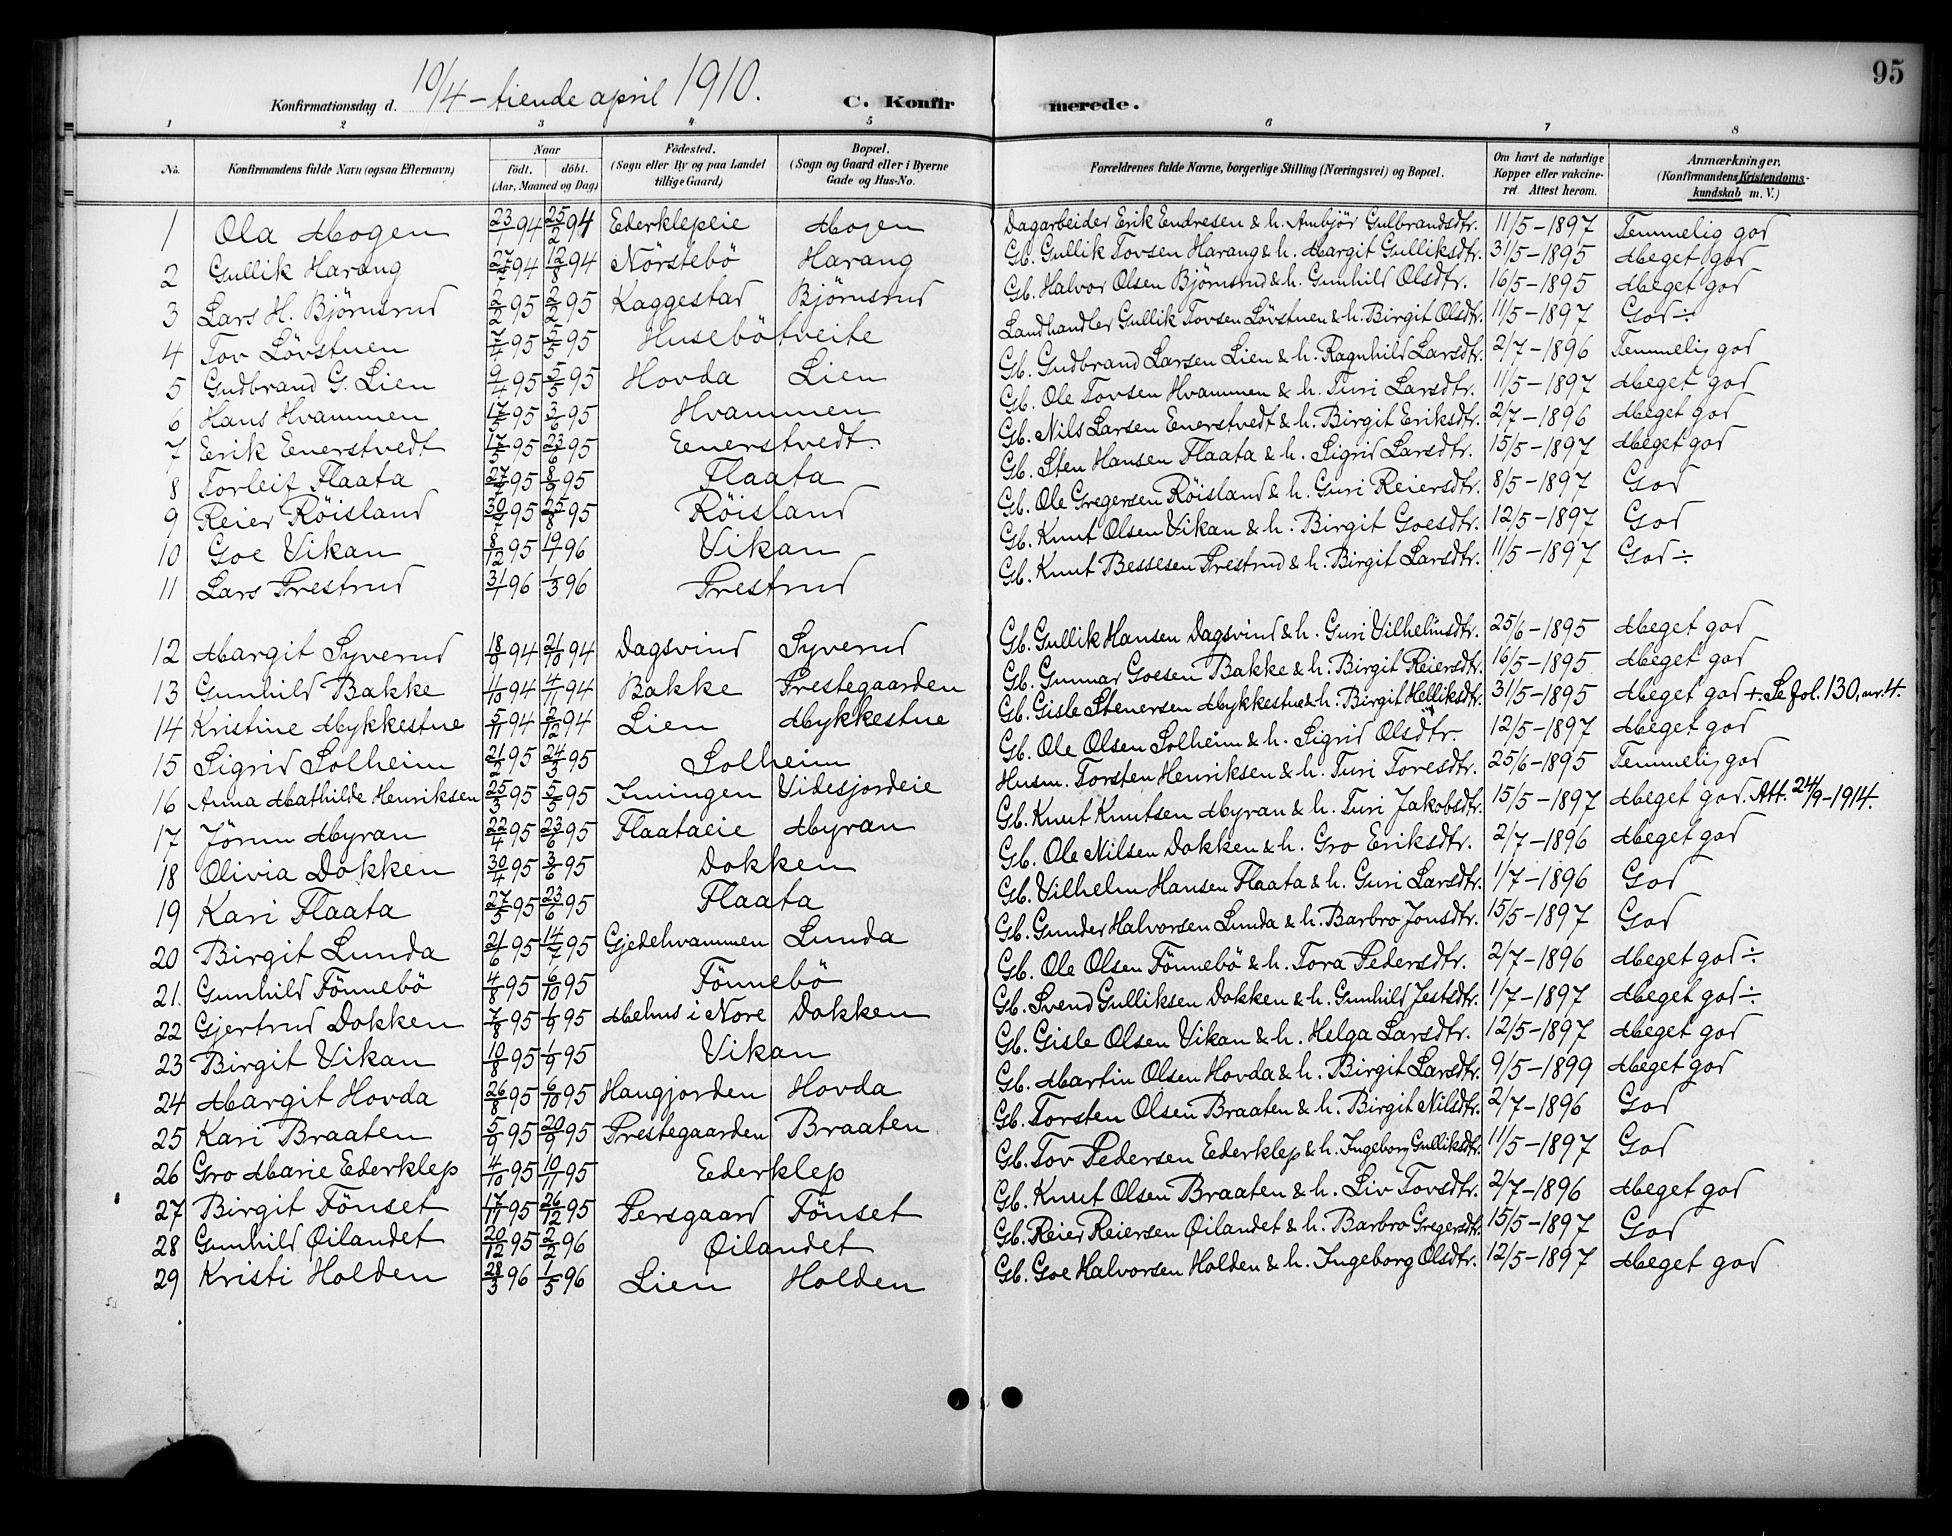 95
Konfirmationsdag d. 10/4 - tiende april 1910. C. Konfirmerede.
1 2 3 4 5 6 7 8
No. Konfirmandens fulde Navn (ogsaa Efternavn) Naar födt. döbt. (Aar, Maaned og Dag) Födested. (Sogn eller By og paa Landet tillige Gaard) Bopæl. (Sogn og Gaard eller i Byerne Gade og Hus-No. Forældrenes fulde Navne, borgerlige Stilling (Næringsvei) og Bopæl. Om havt de naturlige Kopper eller vakcineret. Attest herom. Anmærkninger. (Konfirmandens Kristendomskundskab m. V.)
1 Ola Mogen 23/1 94 25/2 94 Ederklepeie Mogen Dagarbeider Erik Endresen & h. Ambjör Gulbrandsdtr. 11/5-1897 Temmelig god
2 Gullik Harang 27/7 94 12/8 94 Nörstebö Harang Gb. Gullik Tovsen Harang & h. Margit Gulliksdtr. 31/5-1895 Meget god
3 Lars H. Björnsrud 2/2 95 2/2 95 Kaggestad Björnsrud Gb. Halvor Olsen Björnsrud & h. Gunhild Olsdtr. 16/5-1895 Meget god
4 Tov Lövstuen 7/4 95 5/5 95 Husebötveite Landhandler Gullik Tovsen Lövstuen & h. Birgit Olsdtr. 11/5-1897 God ÷
5 Gudbrand G. Lien 9/4 95 5/5 95 Hovda Lien Gb. Gudbrand Larsen Lien & h. Ragnhild Larsdtr. 2/7-1896 Temmelig god
6 Hans Hvammen 17/5 95 3/6 95 Hvammen Gb. Ole Tovsen Hvammen & h. Turi Larsdtr. 11/5-1897 Meget god
7 Erik Enerstvedt 17/5 95 23/6 95 Enerstvedt. Gb. Nils Larsen Enerstvedt & h. Birgit Eriksdtr. 2/7-1896 Meget god
8 Torleif Flaata 27/7 95 8/9 95 Flaata Gb. Sten Hansen Flaata & h. Sigrid Larsdtr. 15/5-1897 Meget god
9 Reier Röisland 30/7 95 25/8 95 Röisland Gb. Ole Gregersen Röisland & h. Guri Reiersdtr. 8/5-1897 God
10 Goe Vikan 8/12 95 19/1 96 Vikan Gb. Knut Olsen Vikan & h. Birgit Goesdtr. 12/5-1897 God
11 Lars Prestrud 31/1 96 1/3 96 Prestrud Gb. Knut Bessesen Prestrud & h. Birgit Larsdtr. 11/5-1897 God ÷
12 Margit Syverud 18/9 94 21/10 94 Dagsvind Syverud Gb. Gullik Hansen Dagsvind & h. Guri Vilhelmsdtr. 25/6-1895 Meget god
13 Gunhild Bakke 4/10 94 4/11 94 Bakke Prestegaarden Gb. Gunnar Goesen Bakke & h. Birgit Reiersdtr. 16/5-1895 Meget god
14 Kristine Mykkestue 5/11 94 2/12 94 Lien Mykkestue Gb. Gisle Stenersen Mykkestue & h. Birgit Helliksdtr. 31/5-1895 Meget god +. Se fol. 130, nr. 4.
15 Sigrid Solheim 21/2 95 24/3 95 Solheim Gb. Ole Olsen Solheim & h. Sigrid Olsdtr. 12/5-1897 Meget god
16 Anna Mathilde Henriksen 25/3 95 5/5 95 Imingen Videsjordeie Husm. Torsten Henriksen & h. Turi Toresdtr. 25/6-1895 Temmelig god
17 Jörun Myran 22/4 95 23/6 95 Flaataeie Myran Gb. Knut Knutsen Myran & h. Turi Jakobsdtr. 15/5-1897 Meget god. Att. 24/9-1914.
18 Olivia Dokken 30/4 95 3/6 95 Dokken Gb. Ole Nilsen Dokken & h. Gro Eriksdtr. 2/7-1896 Meget god
19 Kari Flaata 27/5 95 23/6 95 Flaata Gb. Vilhelm Hansen Flaata & h. Guri Larsdtr. 1/7-1896 God
20 Birgit Lunda 21/6 95 14/7 95 Gjedehvammen Lunda Gb. Gunder Halvorsen Lunda & h. Barbro Jonsdtr. 15/5-1897 God
21. Gunhild Fönnebö 4/8 95 6/10 95 Fönnebö Gb. Ole Olsen Fönnebö & h. Tora Pedersdtr. 2/7-1896 Meget god ÷
22 Gjertrud Dokken 7/8 95 1/9 95 Mehus i Nore Dokken Gb. Svend Gulliksen Dokken & h. Gunhild Jestsdtr. 1/7-1897 Meget god ÷
23 Birgit Vikan 10/8 95 1/9 95 Vikan Gb. Gisle Olsen Vikan & h. Helga Larsdtr. 12/5-1897 Meget god
24 Margit Hovda 26/8 95 6/10 95 Haugjorden Hovda Gb. Martin Olsen Hovda & h. Birgit Larsdtr. 9/5-1899 Meget god
25 Kari Braaten 5/9 95 20/9 95 Prestegaarden Braaten Gb. Torsten Olsen Braaten & h. Birgit Nilsdtr. 2/7-1896 God
26 Gro Marie Ederklep 4/10 95 10/11 95 Ederklep Gb. Tov Pedersen Ederklep & h. Ingeborg Gulliksdtr. 11/5-1897 God
27 Birgit Fönset 17/11 95 26/12 95 Persgaard Fönset Gb. Knut Olsen Braaten & h. Liv Tovsdtr. 2/7-1896 Meget god
28 Gunhild Øilandet 20/12 95 2/2 96 Øilandet Gb. Reier Reiersen Øilandet & h. Barbro Gregersdtr. 15/5-1897 God
29 Kristi Holden 28/3 96 7/5 96 Lien Holden Gb. Goe Halvorsen Holden & h. Ingeborg Olsdtr. 12/5-1897 Meget god